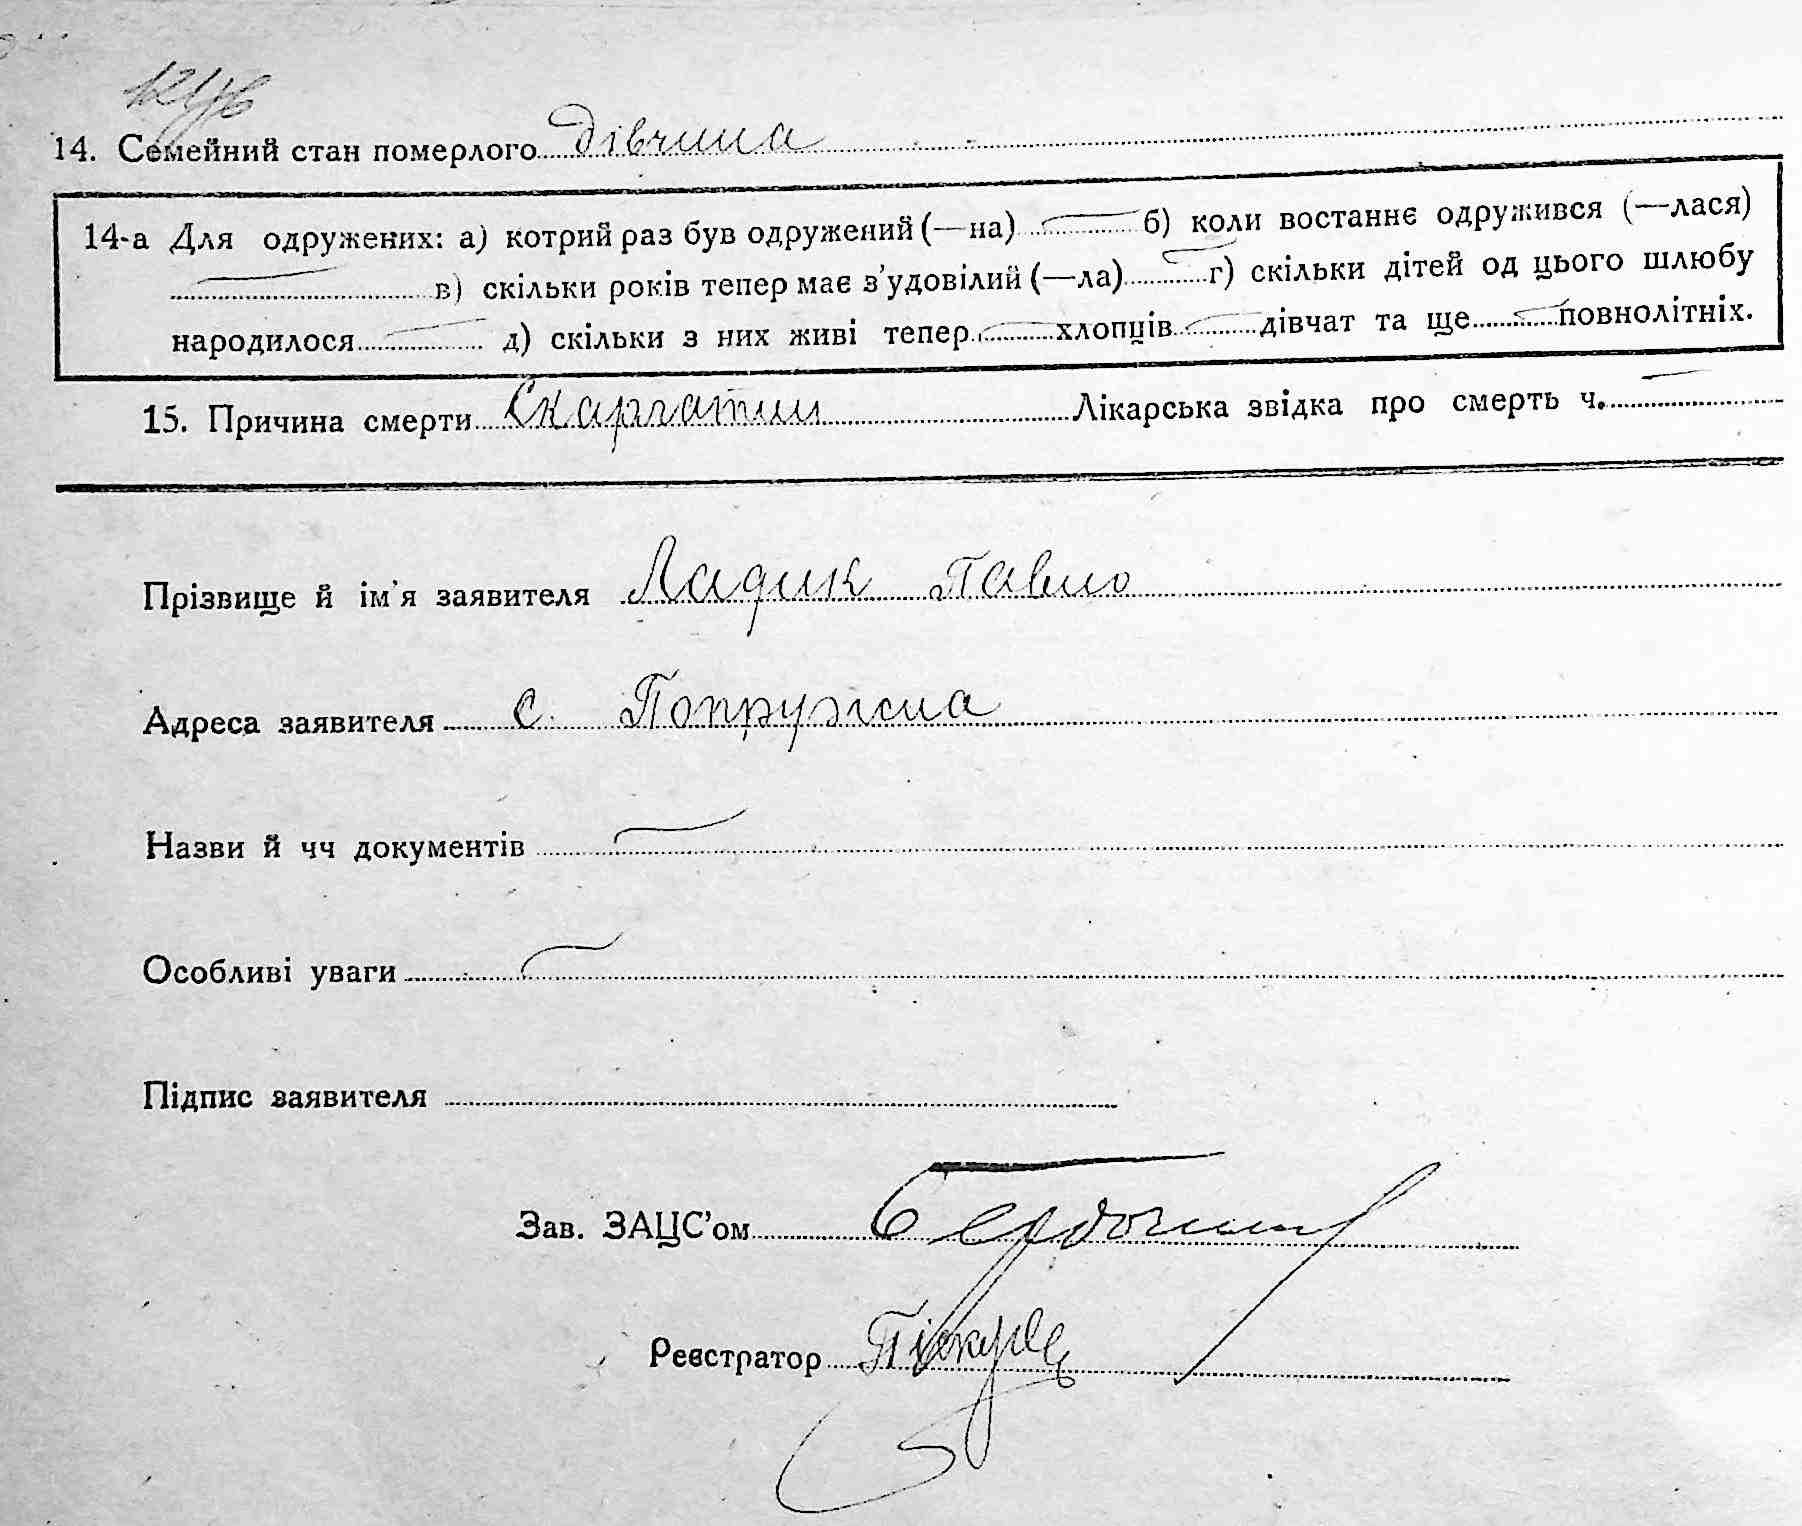 14. Семейний стан померлого дівчина
14-а Для одружених: а) котрий раз був одружений (—на) б) коли востаннє одружився (—лася)
в) скільки років тепер має з’удовілий (—ла) г) скільки дітей од цього шлюбу
народилося д) скільки з них живі тепер хлопців дівчат та ще повнолітніх.
15. Причина смерти Скарлатин Лікарська звідка про смерть ч.
Прізвище й ім’я заявителя Ладик Павло
Адреса заявителя с. Попружна
Назви й чч документів
Особливі уваги
Підпис заявителя
Зав. ЗАЦС’ом
Реєстратор